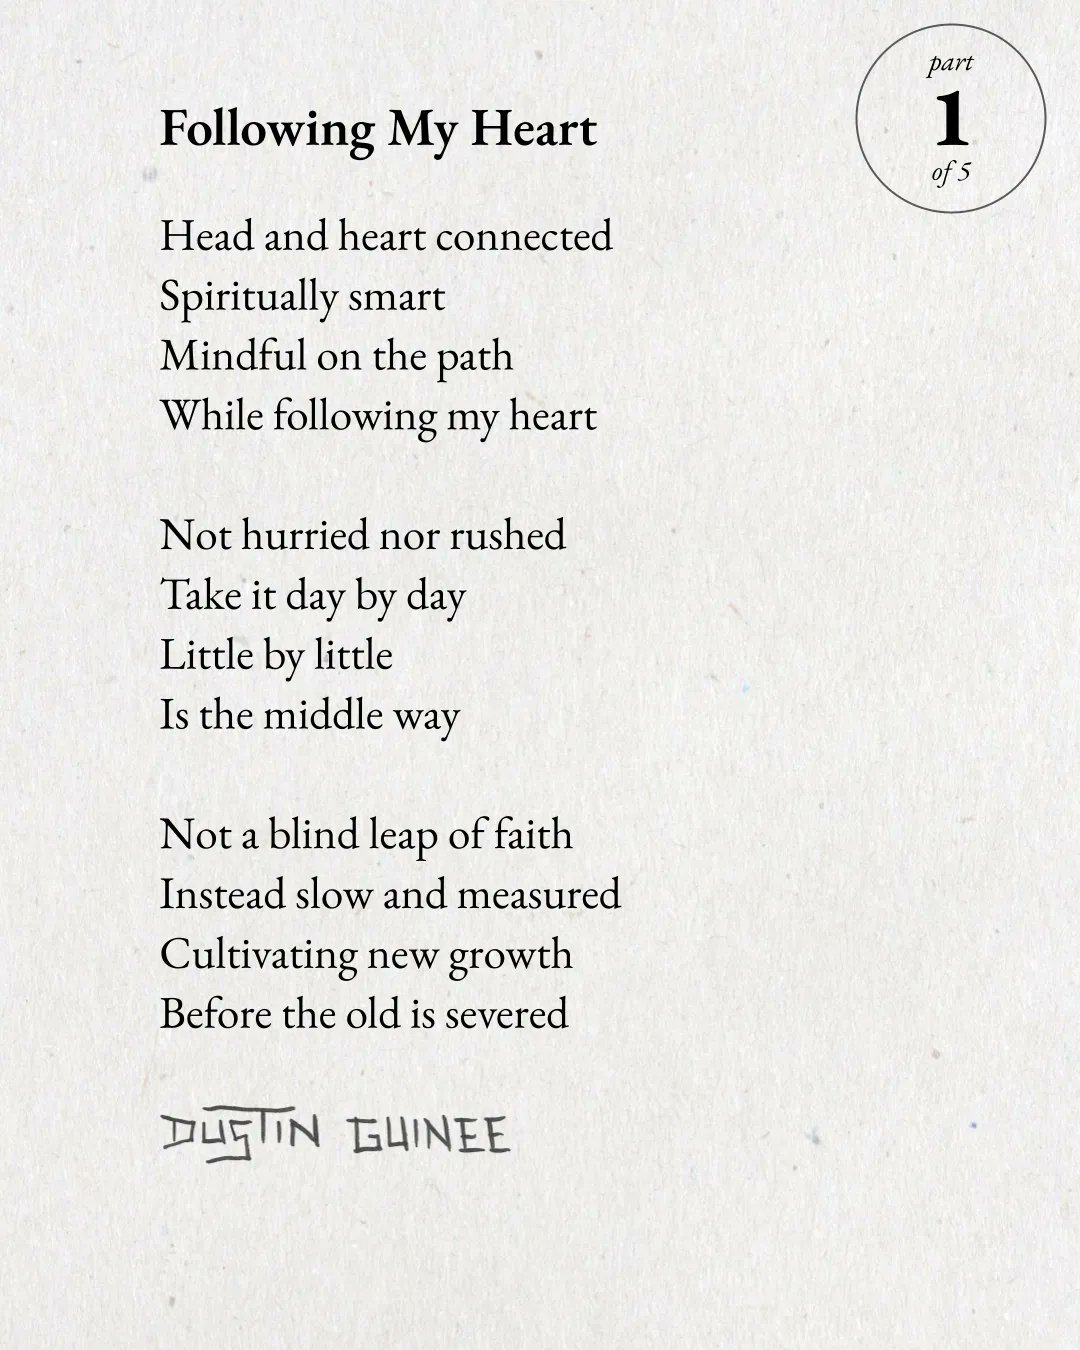 part
1
of 5
Following My Heart
Head and heart connected
Spiritually smart
Mindful on the path
While following my heart
Not hurried nor rushed
Take it day by day
Little by little
Is the middle way
Not a blind leap of faith
Instead slow and measured
Cultivating new growth
Before the old is severed
DUSTIN GUINEE